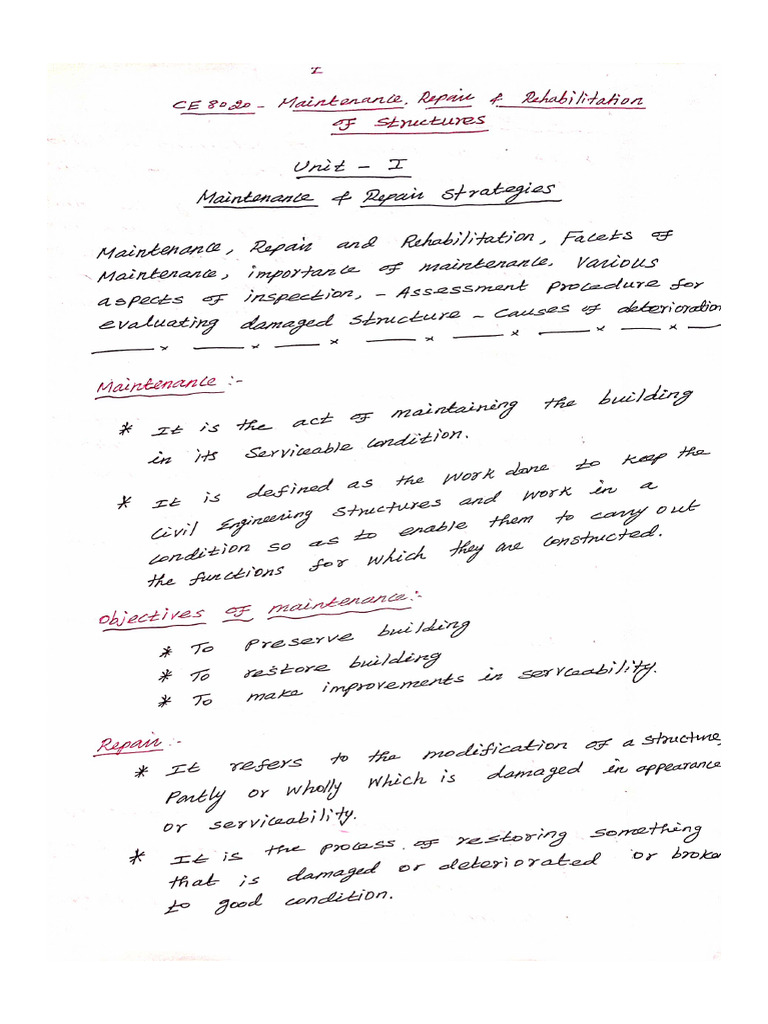 I
CE 8020 - Maintenance, Repair & Rehabilitation
of Structures
Unit - I
Maintenance & Repair Strategies
Maintenance, Repair and Rehabilitation, Facets of
Maintenance, importance of maintenance, Various
aspects of inspection, - Assessment procedure for
evaluating damaged structure - causes of deterioration
Maintenance :-
* It is the act of maintaining the building
in its Serviceable condition.
* It is defined as the work done to keep the
Civil Engineering Structures and work in a
condition so as to enable them to carry out
the functions for which they are constructed.
Objectives of maintenance:-
* To preserve building
* To restore building
* To make improvements in serviceability.
Repair :-
* It refers to the modification of a structure,
Partly or wholly which is damaged in appearance
or serviceability.
* It is the process of restoring something
that is damaged or deteriorated or broke
to good condition.